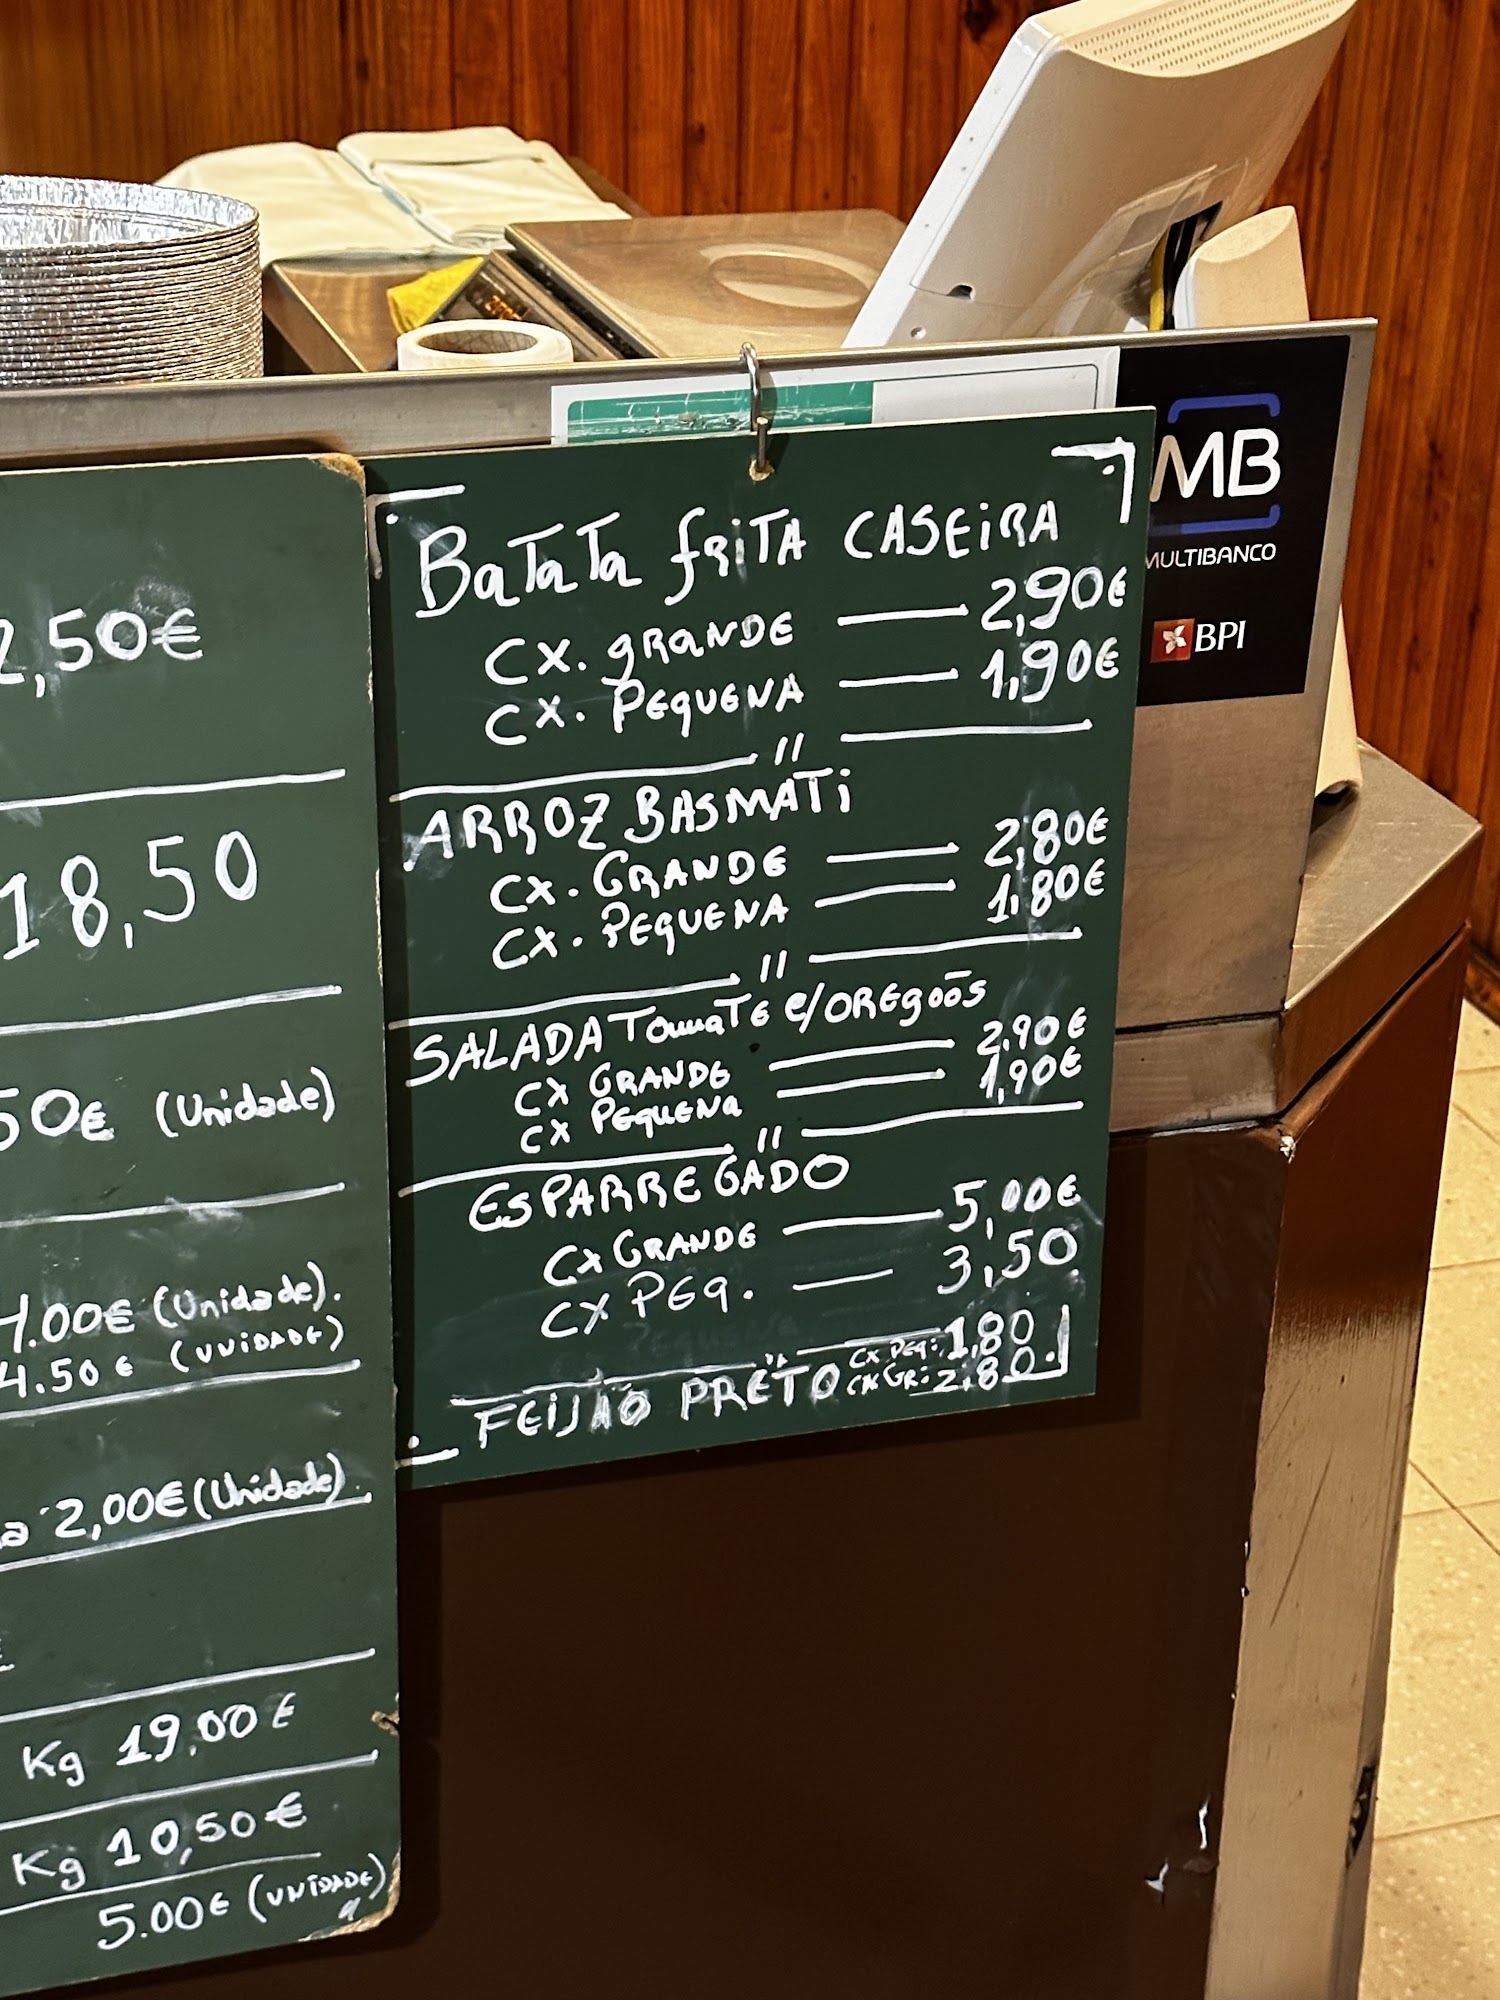 2,50€
18,50
50€ (Unidade)
4.00€ (Unidade).
4.50€ (UNIDADE)
a 2,00€ (Unidade).
Kg 19,00€
Kg 10,50€
5.00€ (UNIDADE)
BATATA FRITA CASEIRA
CX. GRANDE — 2,90€
CX. PEQUENA — 1,90€
ARROZ BASMATI
CX. GRANDE — 2,80€
CX. PEQUENA — 1,80€
SALADA TOMATE C/OREGOÕS
CX GRANDE — 2,90€
CX PEQUENA — 1,90€
ESPARREGADO
CX GRANDE — 5,00€
CX PEQ. — 3,50
CX PEQ: 1,80
FEIJÃO PRETO CX GR: 2,80.
MB
MULTIBANCO
BPI